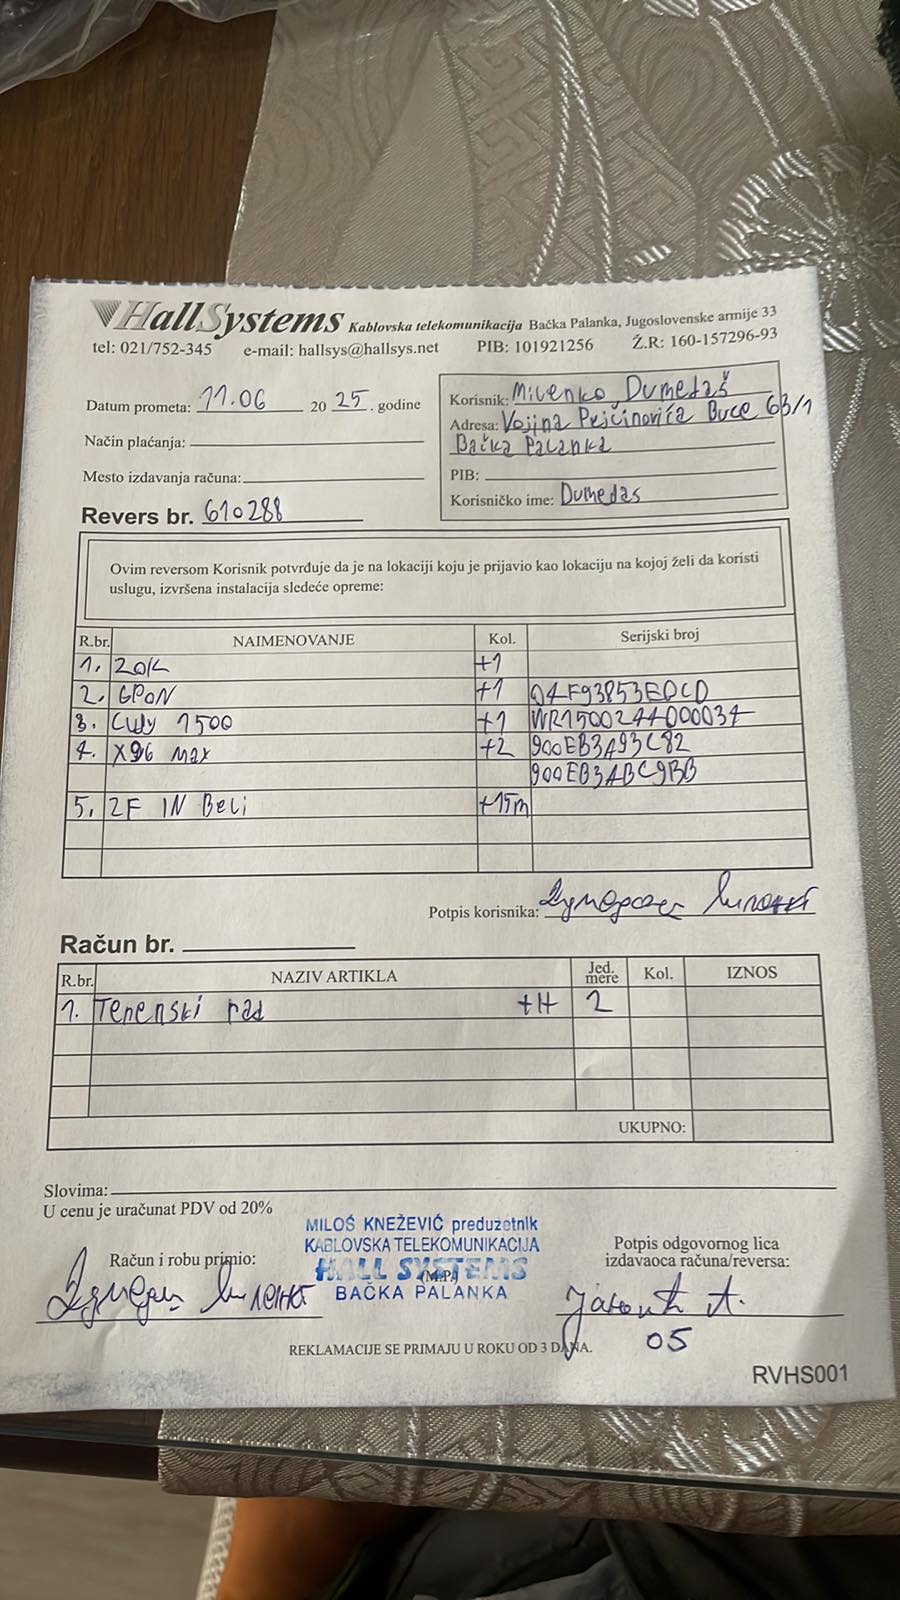 HallSystems Kablovska telekomunikacija Bačka Palanka, Jugoslovenske armije 33
tel: 021/752-345 e-mail: hallsys@hallsys.net PIB: 101921256 Ž.R: 160-157296-93
Datum prometa: 11.06 20 25. godine
Način plaćanja:
Mesto izdavanja računa:
Revers br. 610288
Korisnik: Milenko Dumedaš
Adresa: Vojina Prjčinovića Buce 63/1
Bačka Palanka
PIB:
Korisničko ime: Dumedas
Ovim reversom Korisnik potvrđuje da je na lokaciji koju je prijavio kao lokaciju na kojoj želi da koristi
uslugu, izvršena instalacija sledeće opreme:
R.br. NAIMENOVANJE Kol. Serijski broj
1. ZOK +1
2. GPON +1
3. Cudy 1500 +1 WR1500244000034
4. X96 max +2 900EB3A93C82
900EB3ABC9BB
5. 2F IN Beli +15m
Potpis korisnika:
Račun br.
R.br. NAZIV ARTIKLA Jed. mere Kol. IZNOS
1. Terenski rad +H 2
UKUPNO:
Slovima:
U cenu je uračunat PDV od 20%
MILOŠ KNEŽEVIĆ preduzetnik
KABLOVSKA TELEKOMUNIKACIJA
HALL SYSTEMS
(M.P.)
BAČKA PALANKA
Račun i robu primio:
Potpis odgovornog lica
izdavaoca računa/reversa:
05
REKLAMACIJE SE PRIMAJU U ROKU OD 3 DANA.
RVHS001